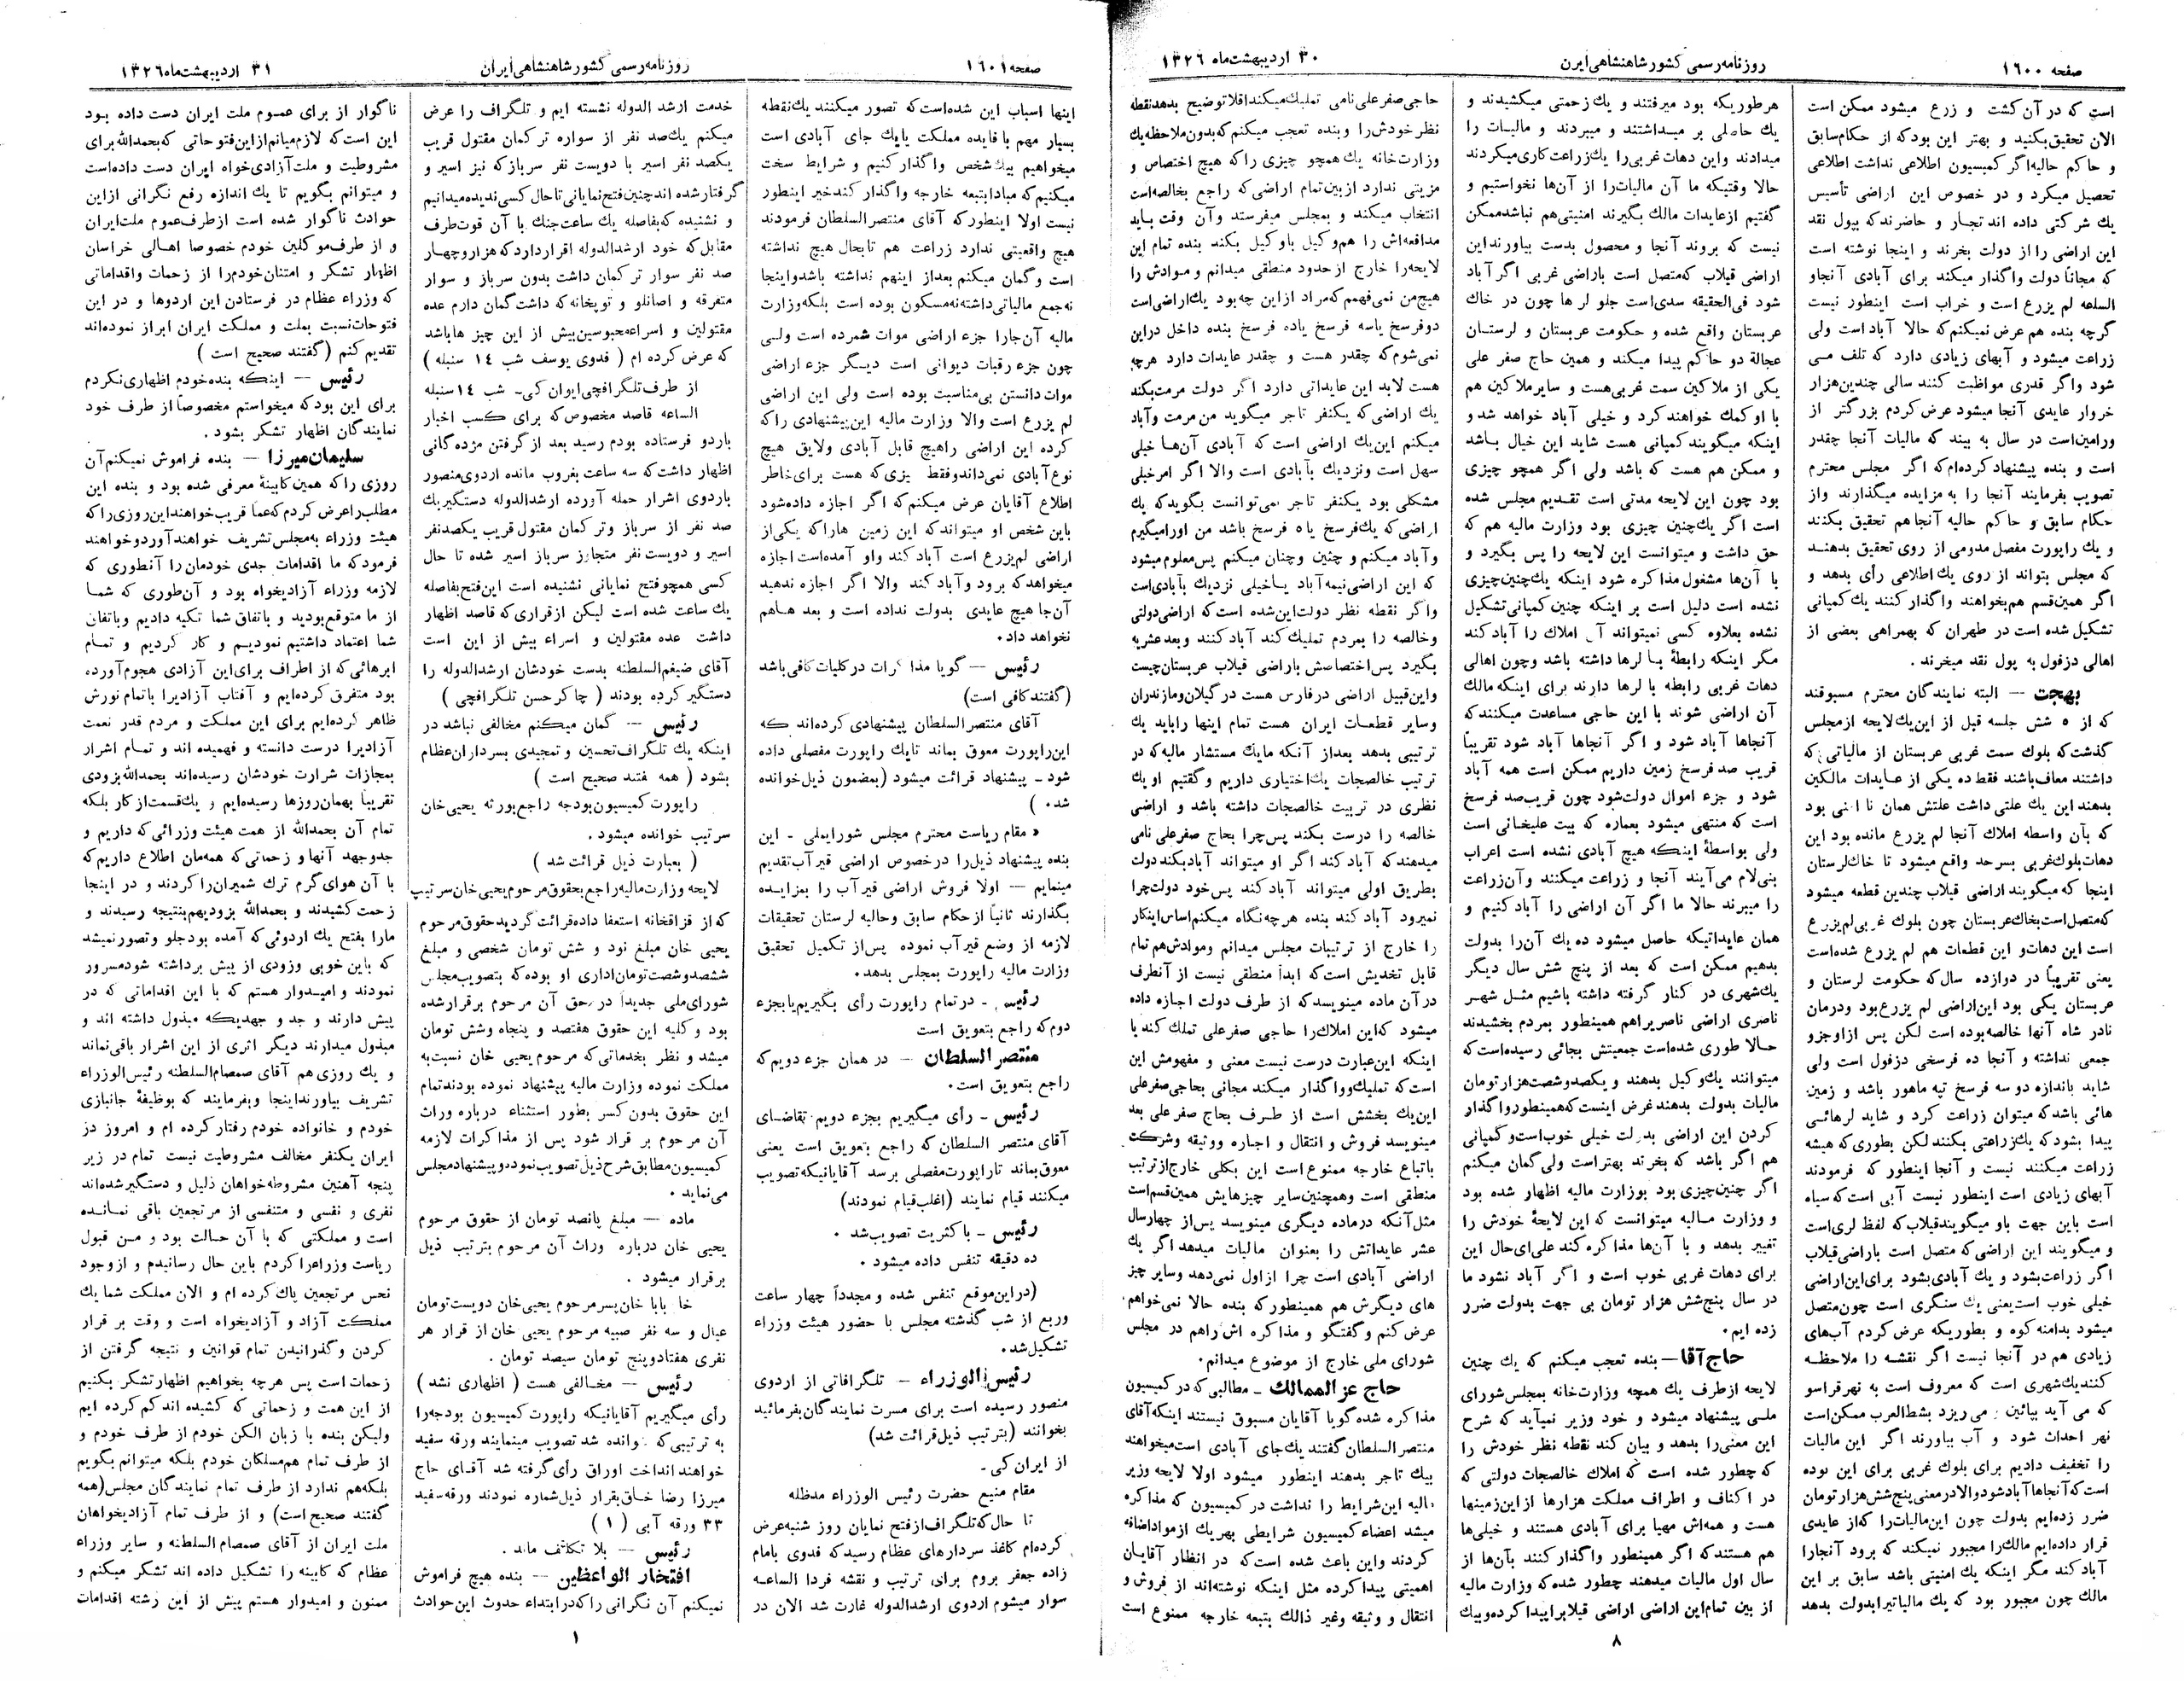 صفحه ١٦٠٠
روزنامه رسمی کشور شاهنشاهی ایرن
٣٠ اردیبهشت ماه ١٣٢٦
است که در آن کشت و زرع میشود ممکن است
الان تحقیق بکنید و بهتر این بود که از حکام سابق
و حاکم حالیه اگر کمیسیون اطلاعی نداشت اطلاعی
تحصیل میکرد و در خصوص این اراضی تأسیس
یك شرکتی داده اند تجار و حاضرند که بپول نقد
این اراضی را از دولت بخرند و اینجا نوشته است
که مجاناً دولت واگذار میکند برای آبادی آنجا و
الساعه لم یزرع است و خراب است اینطور نیست
گرچه بنده هم عرض نمیکنم که حالا آباد است ولی
زراعت میشود و آبهای زیادی دارد که تلف مـی
شود واگر قدری مواظبت کنند سالی چندین هزار
خروار عایدی آنجا میشود عرض کردم بزرگتر از
ورامین است در سال به بیند که مالیات آنجا چقدر
است و بنده پیشنهاد کرده ام که اگر مجلس محترم
تصویب بفرمایند آنجا را به مزایده میگذارند واز
حکام سابق و حاکم حالیه آنجا هم تحقیق بکنند
و یك راپورت مفصل مدومی از روی تحقیق بدهنـد
که مجلس بتواند از روی یك اطلاعی رأی بدهد و
اگر همین قسم هم بخواهند واگذار کنند یك کمپانی
تشکیل شده است در طهران که بهمراهی بعضی از
اهالی دزفول به پول نقد میخرند .
بهجت — البته نمایندگان محترم مسبوقند
که از ٥ شش جلسه قبل از این یك لایحه از مجلس
گذشت که بلوك سمت غربی عربستان از مالیاتی که
داشتند معاف باشند فقط ده یکی از عـایدات مالکین
بدهند این یك علتی داشت علتش همان نا امنی بود
که بآن واسطه املاك آنجا لم یزرع مانده بود این
دهات بلوك غربی بسرحد واقع میشود تا خاك لرستان
اینجا که میگویند اراضی قیلاب چندین قطعه میشود
که متصل است بخاك عربستان چون بلوك غربی لم یزرع
است این دهات و این قطعات هم لم یزرع شده است
یعنی تقریباً در دوازده سال که حکومت لرستان و
عربستان یکی بود این اراضی لم یزرع بود ودرمان
نادر شاه آنها خالصه بوده است لکن پس از او جزو
جمعی نداشته و آنجا ده فرسخی دزفول است ولی
شاید باندازه دو سه فرسخ تپه ماهور باشد و زمین
هائی باشد که میتوان زراعت کرد و شاید لرهائـی
پیدا بشود که یك زراعتی بکنند لکن بطوری که هیشه
زراعت میکنند نیست و آنجا اینطور که فرمودند
آبهای زیادی است اینطور نیست آبی است که سیاه
است باین جهت باو میگویند قیلاب که لفظ لری است
و میگویند این اراضی که متصل است باراضی قیلاب
اگر زراعت بشود و یك آبادی بشود برای این اراضی
خیلی خوب است یعنی یك سنگری است چون متصل
میشود بدامنه کوه و بطوریکه عرض کردم آب های
زیادی هم در آنجا نیست اگر نقشه را ملاحظه
کنند یك شهری است که معروف است به نهر قراسو
که می آید بیائین می ریزد بشط العرب ممکن است
نهر احداث شود و آب بیاورند اگر این مالیات
را تخفیف دادیم برای بلوك غربی برای این بوده
است که آنجاها آباد شود والا در معنی پنج شش هزار تومان
ضرر زده ایم بدولت چون این مالیات را که از عایدی
قرار داده ایم مالك را مجبور نمیکند که برود آنجا را
آباد کند مگر اینکه یك امنیتی باشد سابق بر این
مالك چون مجبور بود که یك مالیاتی را بدولت بدهد
هر طوریکه بود میرفتند و یك زحمتی میکشیدند و
یك حاصلی بر میـداشتند و میبردند و مالیـات را
میدادند و این دهات غربی را یك زراعت کاری میکردند
حالا وقتیکه ما آن مالیات را از آن ها نخواستیم و
گفتیم از عایدات مالك بگیرند امنیتی هم نباشد ممکن
نیست که بروند آنجا و محصول بدست بیاورند این
اراضی قیلاب که متصل است باراضی غربی اگر آباد
شود فی الحقیقه سدی است جلو لر ها چون در خاك
عربستان واقع شده و حکومت عربستان و لرستـان
عجالة دو حاکم پیدا میکند و همین حاج صفر علی
یکی از ملاکین سمت غربی هست و سایر ملاکین هم
با او کمك خواهند کرد و خیلی آباد خواهد شد و
اینکه میگویند کمپانی هست شاید این خیال بـاشد
و ممکن هم هست که باشد ولی اگر همچو چیزی
بود چون این لایحه مدتی است تقدیم مجلس شده
است اگر یك چنین چیزی بود وزارت مالیه هم که
حق داشت و میتوانست این لایحه را پس بگیرد و
با آن ها مشغول مذاکره شود اینکه یك چنین چیزی
نشده است دلیل است بر اینکه چنین کمپانی تشکیل
نشده بعلاوه کسی نمیتواند آن املاك را آباد کند
مگر اینکه رابطهٔ بـا لرها داشته باشد وچون اهالی
دهات غربی رابطه با لرها دارند برای اینکه مالك
آن اراضی شوند با این حاجی مساعدت میکنند که
آنجاها آباد شود و اگر آنجاها آباد شود تقریباً
قریب صد فرسخ زمین داریم ممکن است همه آباد
شود و جزء اموال دولت شود چون قریب صد فرسخ
است که منتهی میشود بعماره که بیت علیخانی است
ولی بواسطهٔ اینکه هیچ آبادی نشده است اعراب
بنی لام می آیند آنجا و زراعت میکنند و آن زراعت
را میبرند حالا ما اگر آن اراضی را آباد کنیم و
همان عایداتیکه حاصل میشود ده یك آن را بدولت
بدهیم ممکن است که بعد از پنج شش سال دیگر
یك شهری در کنار گرفته داشته باشیم مثـل شهـر
ناصری اراضی ناصریرا هم همینطور بمردم بخشیدند
حـالا طوری شده است جمعیتش بجائی رسیده است که
میتوانند یك وکیل بدهند و یکصد و شصت هزار تومان
مالیات بدولت بدهند غرض اینست که همینطور واگذار
کردن این اراضی بدولت خیلی خوب است و کمپانی
هم اگر باشد که بخرند بهتر است ولی گمان میکنم
اگر چنین چیزی بود بوزارت مالیه اظهار شده بود
و وزارت مـالیه میتوانست که این لایحهٔ خودش را
تغییر بدهد و با آن ها مذاکره کند علی ای حال این
برای دهات غربی خوب است و اگر آباد نشود ما
در سال پنج شش هزار تومان بی جهت بدولت ضرر
زده ایم .
حاج آقا — بنده تعجب میکنم که یك چنین
لایحه از طرف یك همچه وزارت خانه بمجلس شورای
ملـی پیشنهاد میشود و خود وزیر نمیآید که شرح
این معنی را بدهد و بیان کند نقطه نظر خودش را
که چطور شده است که املاك خالصجات دولتی که
در اکناف و اطراف مملکت هزارها از این زمینها
هست و همه اش مهیا برای آبادی هستند و خیلی ها
هم هستند که اگر همینطور واگذار کنند بآن ها از
سال اول مالیات میدهند چطور شده که وزارت مالیه
از بین تمام این اراضی اراضی قیلاب را پیدا کرده و بیك
حاجی صفر علی نامی تملیك میکند اقلا توضیح بدهد نقطه
نظر خودش را و بنده تعجب میکنم که بدون ملاحظه یك
وزارت خانه یك همچو چیزی را که هیچ اختصاص و
مزیتی ندارد از بین تمام اراضی که راجع بخالصه است
انتخاب میکند و بمجلس میفرستد و آن وقت بـاید
مدافعه اش را هم وکیل با وکیل بکند بنده تمام این
لایحه را خارج از حدود منطقی میدانم و مـوادش را
هیچ من نمی فهمم که مراد از این چه بود یك اراضی است
دو فرسخ یا سه فرسخ یا ده فرسخ بنده داخل در این
نمی شوم که چقدر هست و چقدر عایدات دارد هر چه
هست لابد این عایداتی دارد اگر دولت مرمت بکند
یك اراضی که یکنفر تاجر میگوید من مرمت و آباد
میکنم این یك اراضی است که آبادی آن هـا خیلی
سهل است و نزدیك بآبادی است والا اگر امر خیلی
مشکلی بود یکنفر تاجر نمی توانست بگوید که یك
اراضی که یك فرسخ یا ٥ فرسخ باشد من او را میگیرم
و آباد میکنم و چنین و چنان میکنم پس معلوم میشود
که این اراضی نیمه آباد یا خیلی نزدیك بآبادی است
واگر نقطه نظر دولت این شده است که اراضی دولتی
و خالصه را بمردم تملیك کند آباد کنند و بعد عشریه
بگیرد پس اختصاصش باراضی قیلاب عربستان چیست
واین قبیل اراضی در فارس هست در گیلان و مازندران
وسایر قطعـات ایران هست تمام اینها را باید یك
ترتیبی بدهد بعد از آنکه ما یك مستشار مالیه که در
ترتیب خالصجات یك اختیاری داریم و گفتیم او یك
نظری در تربیت خالصجات داشته باشد و اراضی
خالصه را درست بکند پس چرا بحاج صفر علی نامی
میدهند که آباد کند اگر او میتواند آباد بکند دولت
بطریق اولی میتواند آباد کند پس خود دولت چرا
نمیرود آباد کند بنده هر چه نگاه میکنم اساس اینکار
را خارج از ترتیبات مجلس میدانم و موادش هم تمام
قابل تخدیش است که ابداً منطقی نیست از آنطرف
در آن ماده مینویسد که از طرف دولت اجازه داده
میشود که این املاك را حاجی صفر علی تملك کند یا
اینکه این عبارت درست نیست معنی و مفهومش این
است که تملیك و واگذار میکند مجانی بحاجی صفر علی
این یك بخشش است از طـرف بحاج صفر علی بعد
مینویسد فروش و انتقال و اجاره و وثیقه وشرکت
باتباع خارجه ممنوع است این بکلی خارج از ترتیب
منطقی است و همچنین سایر چیزهایش همین قسم است
مثل آنکه در ماده دیگری مینویسد پس از چهار سال
عشر عایداتش را بعنوان مالیات میدهد اگر یك
اراضی آبادی است چرا از اول نمی دهد وسایر چیز
های دیگرش هم همینطور که بنده حالا نمی خواهم
عرض کنم و گفتگو و مذاکره اش را هم در مجلس
شورای ملی خارج از موضوع میدانم .
حاج عز الممالك ـ مطالبی که در کمیسیون
مذاکره شده گویا آقایان مسبوق نیستند اینکه آقای
منتصر السلطان گفتند یك جای آبادی است میخواهند
بیك تاجر بدهند اینطور میشود اولا لایحه وزیر
مالیه این شرایط را نداشت در کمیسیون که مذاکره
میشد اعضاء کمیسیون شرایطی بهر یك از مواد اضافه
کردند و این باعث شده است که در انظار آقایـان
اهمیتی پیدا کرده مثل اینکه نوشته اند از فروش و
انتقال و وثیقه وغیر ذالك بتبعه خارجه ممنوع است
٨
صفحه ١٦٠١
روزنامه رسمی کشور شاهنشاهی ایران
٣١ اردیبهشت ماه ١٣٢٦
اینها اسباب این شده است که تصور میکنند یك نقطه
بسیار مهم با فایده مملکت یا یك جای آبادی است
میخواهیم بیك شخص واگذار کنیم و شرایط سخت
میکنیم که مبادا بتبعه خارجه واگذار کند خیر اینطور
نیست اولا اینطور که آقای منتصر السلطان فرمودند
هیچ واقعیتی ندارد زراعت هم تابحال هیچ نداشته
است و گمان میکنم بعد از اینهم نداشته باشد و اینجا
نه جمع مالیاتی داشته نه مسکون بوده است بلکه وزارت
مالیه آن جا را جزء اراضی موات شمرده است ولـی
چون جزء رقبات دیوانی است دیـگر جزء اراضی
موات دانستن بی مناسبت بوده است ولی این اراضی
لم یزرع است والا وزارت مالیه این پیشنهادی را که
کرده این اراضی را هیچ قابل آبادی ولایق هیچ
نوع آبادی نمی داند و فقط یزی که هست برای خاطر
اطلاع آقایان عرض میکنم که اگر اجازه داده شود
باین شخص او میتواند که این زمین ها را که یکی از
اراضی لم یزرع است آباد کند و او آمده است اجازه
میخواهد که برود و آباد کند والا اگر اجازه ندهید
آن جا هیچ عایدی بدولت نداده است و بعد هـا هم
نخواهد داد .
رئیس — گویا مذاکرات در کلیات کافی باشد
(گفتند کافی است)
آقای منتصر السلطان پیشنهادی کرده اند که
این راپورت معوق بماند تا یك راپورت مفصلی داده
شود ـ پیشنهاد قرائت میشود (بمضمون ذیل خوانده
شد . )
« مقام ریاست محترم مجلس شورایملی ـ این
بنده پیشنهاد ذیل را در خصوص اراضی قیر آب تقدیم
مینمایم — اولا فروش اراضی قیر آب را بمزایـده
بگذارند ثانیاً از حکام سابق و حالیه لرستان تحقیقات
لازمه از وضع قیر آب نموده پس از تکمیل تحقیق
وزارت مالیه راپورت بمجلس بدهد .
رئیس ـ در تمام راپورت رأی بگیریم یا بجزء
دوم که راجع بتعویق است
منتصر السلطان — در همان جزء دویم که
راجع بتعویق است .
رئیس ـ رأی میگیریم بجزء دویم تقاضـای
آقای منتصر السلطان که راجع بتعویق است یعنی
معوق بماند تا راپورت مفصلی برسد آقایانیکه تصویب
میکنند قیام نمایند (اغلب قیام نمودند)
رئیس ـ با کثریت تصویب شد .
ده دقیقه تنفس داده میشود .
(در این موقع تنفس شده و مجدداً چهار ساعت
وربع از شب گذشته مجلس با حضور هیئت وزراء
تشکیل شد .
رئیس الوزراء — تلگرافاتی از اردوی
منصور رسیده است برای مسرت نمایندگان بفرمائید
بخوانند (بترتیب ذیل قرائت شد)
از ایران کی ـ
مقام منیع حضرت رئیس الوزراء مدظله
تا حال که تلگراف از فتح نمایان روز شنبه عرض
کرده ام کاغذ سردارهای عظام رسید که فدوی بامام
زاده جعفر بروم برای ترتیب و نقشه فردا الساعـه
سوار میشوم اردوی ارشد الدوله غارت شد الان در
خدمت ارشد الدوله نشسته ایم و تلگراف را عرض
میکنم یك صد نفر از سواره تر کمان مقتول قریب
یکصد نفر اسیر با دویست نفر سرباز که نیز اسیر و
گرفتار شده اند چنین فتح نمایانی تا حال کسی ندیده میدانیم
و نشنیده که بفاصله یك ساعت جنك با آن قوت طرف
مقابل که خود ارشد الدوله اقرار دارد که هزار و چهار
صد نفر سوار تر کمان داشت بدون سرباز و سوار
متفرقه و اصانلو و توپخانه که داشت گمان دارم عده
مقتولین و اسراء محبوسین بیش از این چیز ها باشد
که عرض کرده ام ( فدوی یوسف شب ١٤ سنبله )
از طرف تلگرافچی ایوان کی ـ شب ١٤ سنبله
الساعه قاصد مخصوص که برای کسب اخبار
باردو فرستاده بودم رسید بعد از گرفتن مژده گانی
اظهار داشت که سه ساعت بغروب مانده اردوی منصور
باردوی اشرار حمله آورده ارشد الدوله دستگیر یك
صد نفر از سرباز وتر کمان مقتول قریب یکصد نفر
اسیر و دویست نفر متجاوز سرباز اسیر شده تا حال
کسی همچو فتح نمایانی نشنیده است این فتح بفاصله
یك ساعت شده است لیکن از قراری که قاصد اظهار
داشت عده مقتولین و اسراء بیش از این است
آقای ضیغم السلطنه بدست خودشان ارشد الدوله را
دستگیر کرده بودند ( چاکر حسن تلگرافچی )
رئیس — گمان میکنم مخالفی نباشد در
اینکه یك تلگراف تحسین و تمجیدی بسرداران عظام
بشود ( همه فتند صحیح است )
راپورت کمیسیون بودجه راجع بورثه یحیی خان
سرتیب خوانده میشود .
( بعبارت ذیل قرائت شد )
لایحه وزارت مالیه راجع بحقوق مرحوم یحیی خان سرتیپ
که از قزاقخانه استعفا داده قرائت گردید حقوق مرحوم
یحیی خان مبلغ نود و شش تومان شخصی و مبلغ
ششصد و شصت تومان اداری او بوده که بتصویب مجلس
شورای ملی جدیداً در حق آن مرحوم برقرار شده
بود و کلیه این حقوق هفتصد و پنجاه وشش تومان
میشد و نظر بخدماتی که مرحوم یحیی خان نسبت به
مملکت نموده وزارت مالیه پیشنهاد نموده بودند تمام
این حقوق بدون کسر بطور استثناء درباره وراث
آن مرحوم بر قرار شود پس از مذاکرات لازمه
کمیسیون مطابق شرح ذیل تصویب نموده و پیشنهاد مجلس
می نماید .
ماده — مبلغ پانصد تومان از حقوق مرحوم
یحیی خان درباره وراث آن مرحوم بترتیب ذیل
برقرار میشود .
خا بابا خان پسر مرحوم یحیی خان دویست تومان
عیال و سه نفر صبیه مرحوم یحیی خان از قرار هر
نفری هفتاد و پنج تومان سیصد تومان .
رئیس — مخـالفی هست ( اظهاری نشد )
رأی میگیریم آقایانیکه راپورت کمیسیون بودجه را
به ترتیبی که خوانده شد تصویب مینمایند ورقه سفید
خواهند انداخت اوراق رأی گرفته شد آقـای حاج
میرزا رضا خـان بقرار ذیل شماره نمودند ورقه سفید
٣٣ ورقه آبی ( ١ )
رئیس — بلا تکلیف ماند .
افتخار الواعظین — بنده هیچ فراموش
نمیکنم آن نگرانی را که در ابتداء حدوث این حوادث
ناگوار از برای عمـوم ملت ایران دست داده بـود
این است که لازم میانم از این فتوحاتی که بحمدالله برای
مشروطیت و ملت آزادی خواه ایران دست داده است
و میتوانم بگویم تا یك اندازه رفع نگرانی از این
حوادث ناگوار شده است از طرف عموم ملت ایران
و از طرف موکلین خودم خصوصا اهـالی خراسان
اظهار تشکر و امتنان خودم را از زحمات واقداماتی
که وزراء عظام در فرستادن این اردوها و در این
فتوحات نسبت بملت و مملکت ایران ابراز نموده اند
تقدیم کنم (گفتند صحیح است )
رئیس — اینکه بنده خودم اظهاری نکردم
برای این بود که میخواستم مخصوصاً از طرف خود
نمایندگان اظهار تشکر بشود .
سلیمان میرزا — بنده فراموش نمیکنم آن
روزی را که همین کابینهٔ معرفی شده بود و بنده این
مطلب را عرض کردم که عما قریب خواهند این روزی را که
هیئت وزراء به مجلس تشریف خواهند آورد و خواهند
فرمود که ما اقدامات جدی خودمان را آنطوری که
لازمه وزراء آزادیخواه بود و آن طوری که شمـا
از ما متوقع بودید و باتفاق شما تکیه دادیم و باتفان
شما اعتماد داشتیم نمودیـم و کار کردیم و تمـام
ابرهائی که از اطراف برای این آزادی هجوم آورده
بود متفرق کرده ایم و آفتاب آزادیرا با تمام نورش
ظاهر کرده ایم برای این مملکت و مردم قدر نعمت
آزادیرا درست دانسته و فهمیده اند و تمـام اشرار
بمجازات شرارت خودشان رسیده اند بحمدالله بزودی
تقریباً بهمان روزها رسیده ایم و یك قسمت از کار بلکه
تمام آن بحمدالله از همت هیئت وزرائی که داریم و
جد و جهد آنها و زحماتی که همه مان اطلاع داریم که
با آن هوای گرم ترك شمیران را کردند و در اینجا
زحمت کشیدند و بحمدالله بزودیهم بنتیجه رسیدند و
مارا بفتح یك اردوئی که آمده بود جلو و تصور نمیشد
که باین خوبی وزودی از پیش برداشته شود مسرور
نمودند و امیـدوار هستم که با این اقداماتی که در
پیش دارند و جد و جهدیکه مبذول داشته اند و
مبذول میدارند دیگر اثری از این اشرار باقی نماند
و یك روزی هم آقای صمصام السلطنه رئیس الوزراء
تشریف بیاورند اینجا وبفرمایند که بوظیفهٔ جانبازی
خودم و خانواده خودم رفتار کرده ام و امروز در
ایران یکنفر مخالف مشروطیت نیست تمام در زیر
پنجه آهنین مشروطه خواهان ذلیل و دستگیر شده اند
نفری و نفسی و متنفسی از مرتجعین باقی نمـانده
است و مملکتی که با آن حـالت بود و مـن قبول
ریاست وزراء را کردم باین حال رسانیدم و از وجود
نحس مرتجعین پاك کرده ام و الان مملکت شما یك
مملکت آزاد و آزادیخواه است و وقت بر قرار
کردن وگذرانیدن تمام قوانین و نتیجه گرفتن از
زحمات است پس هرچه بخواهیم اظهار تشکر بکنیم
از این همت و زحماتی که کشیده اند کم کرده ایم
ولیکن بنده با زبان الکن خودم از طرف خودم و
از طرف تمام هم مسلکان خودم بلکه میتوانم بگویم
بلکه هم ندارد از طرف تمام نمایندگان مجلس (همه
گفتند صحیح است) و از طرف تمام آزادیخواهان
ملت ایران از آقای صمصام السلطنه و سایر وزراء
عظام که کابینه را تشکیل داده اند تشکر میکنم و
ممنون و امیدوار هستم پیش از این رشته اقدامات
١